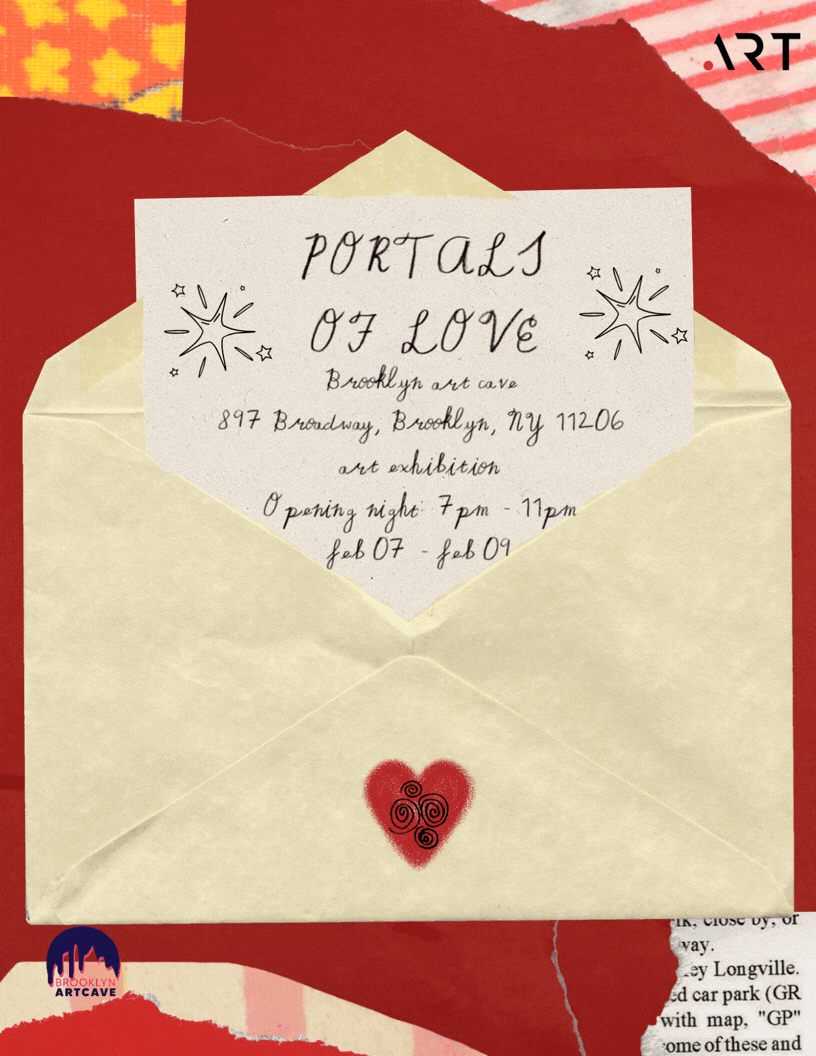 .ART
PORTALS
OF LOVE
Brooklyn art cave
897 Broadway, Brooklyn, NY 11206
art exhibition
Opening night: 7pm - 11pm
feb 07 - feb 09
BROOKLYN
ARTCAVE
close by, or
way.
Longville.
car park (GR
with map, "GP"
ome of these and